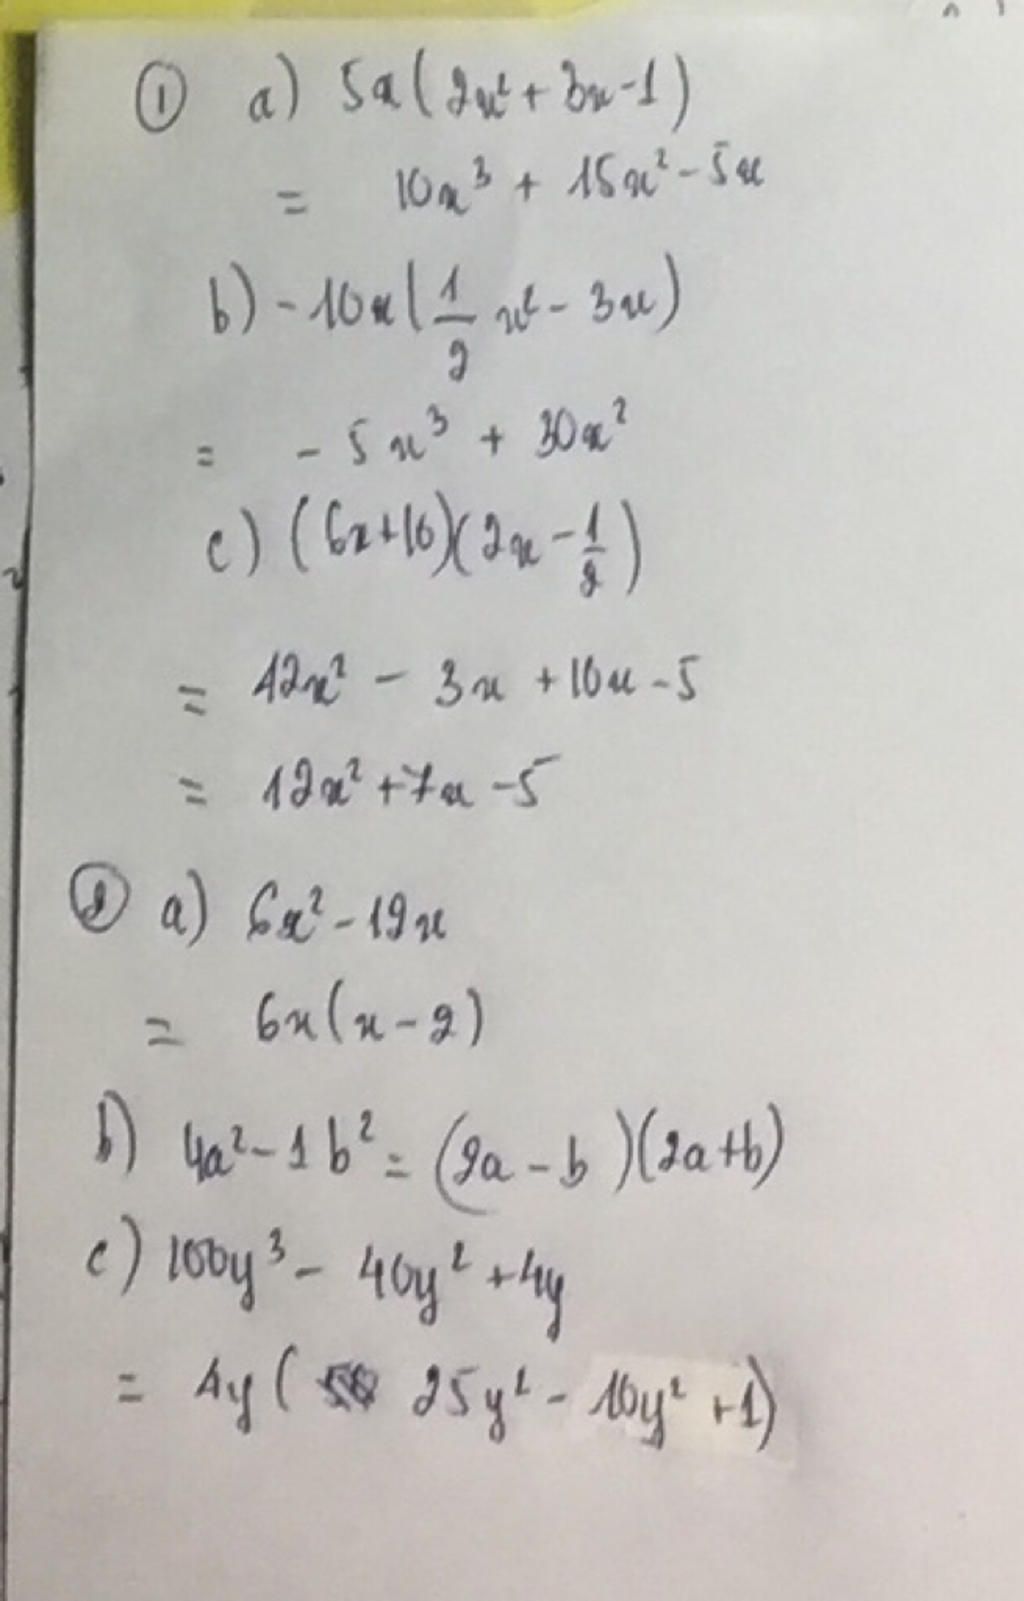 ① a) 5x(2x² + 3x - 1)
= 10x³ + 15x² - 5x
b) - 10x(1/2 x² - 3x)
= - 5x³ + 30x²
c) (6x+10)(2x - 1/2)
= 12x² - 3x + 10x - 5
= 12x² + 7x - 5
② a) 6x² - 12x
= 6x(x - 2)
b) 4a² - 1b² = (2a - b)(2a+b)
c) 100y³ - 40y² + 4y
= 4y( 25y² - 10y² + 1)